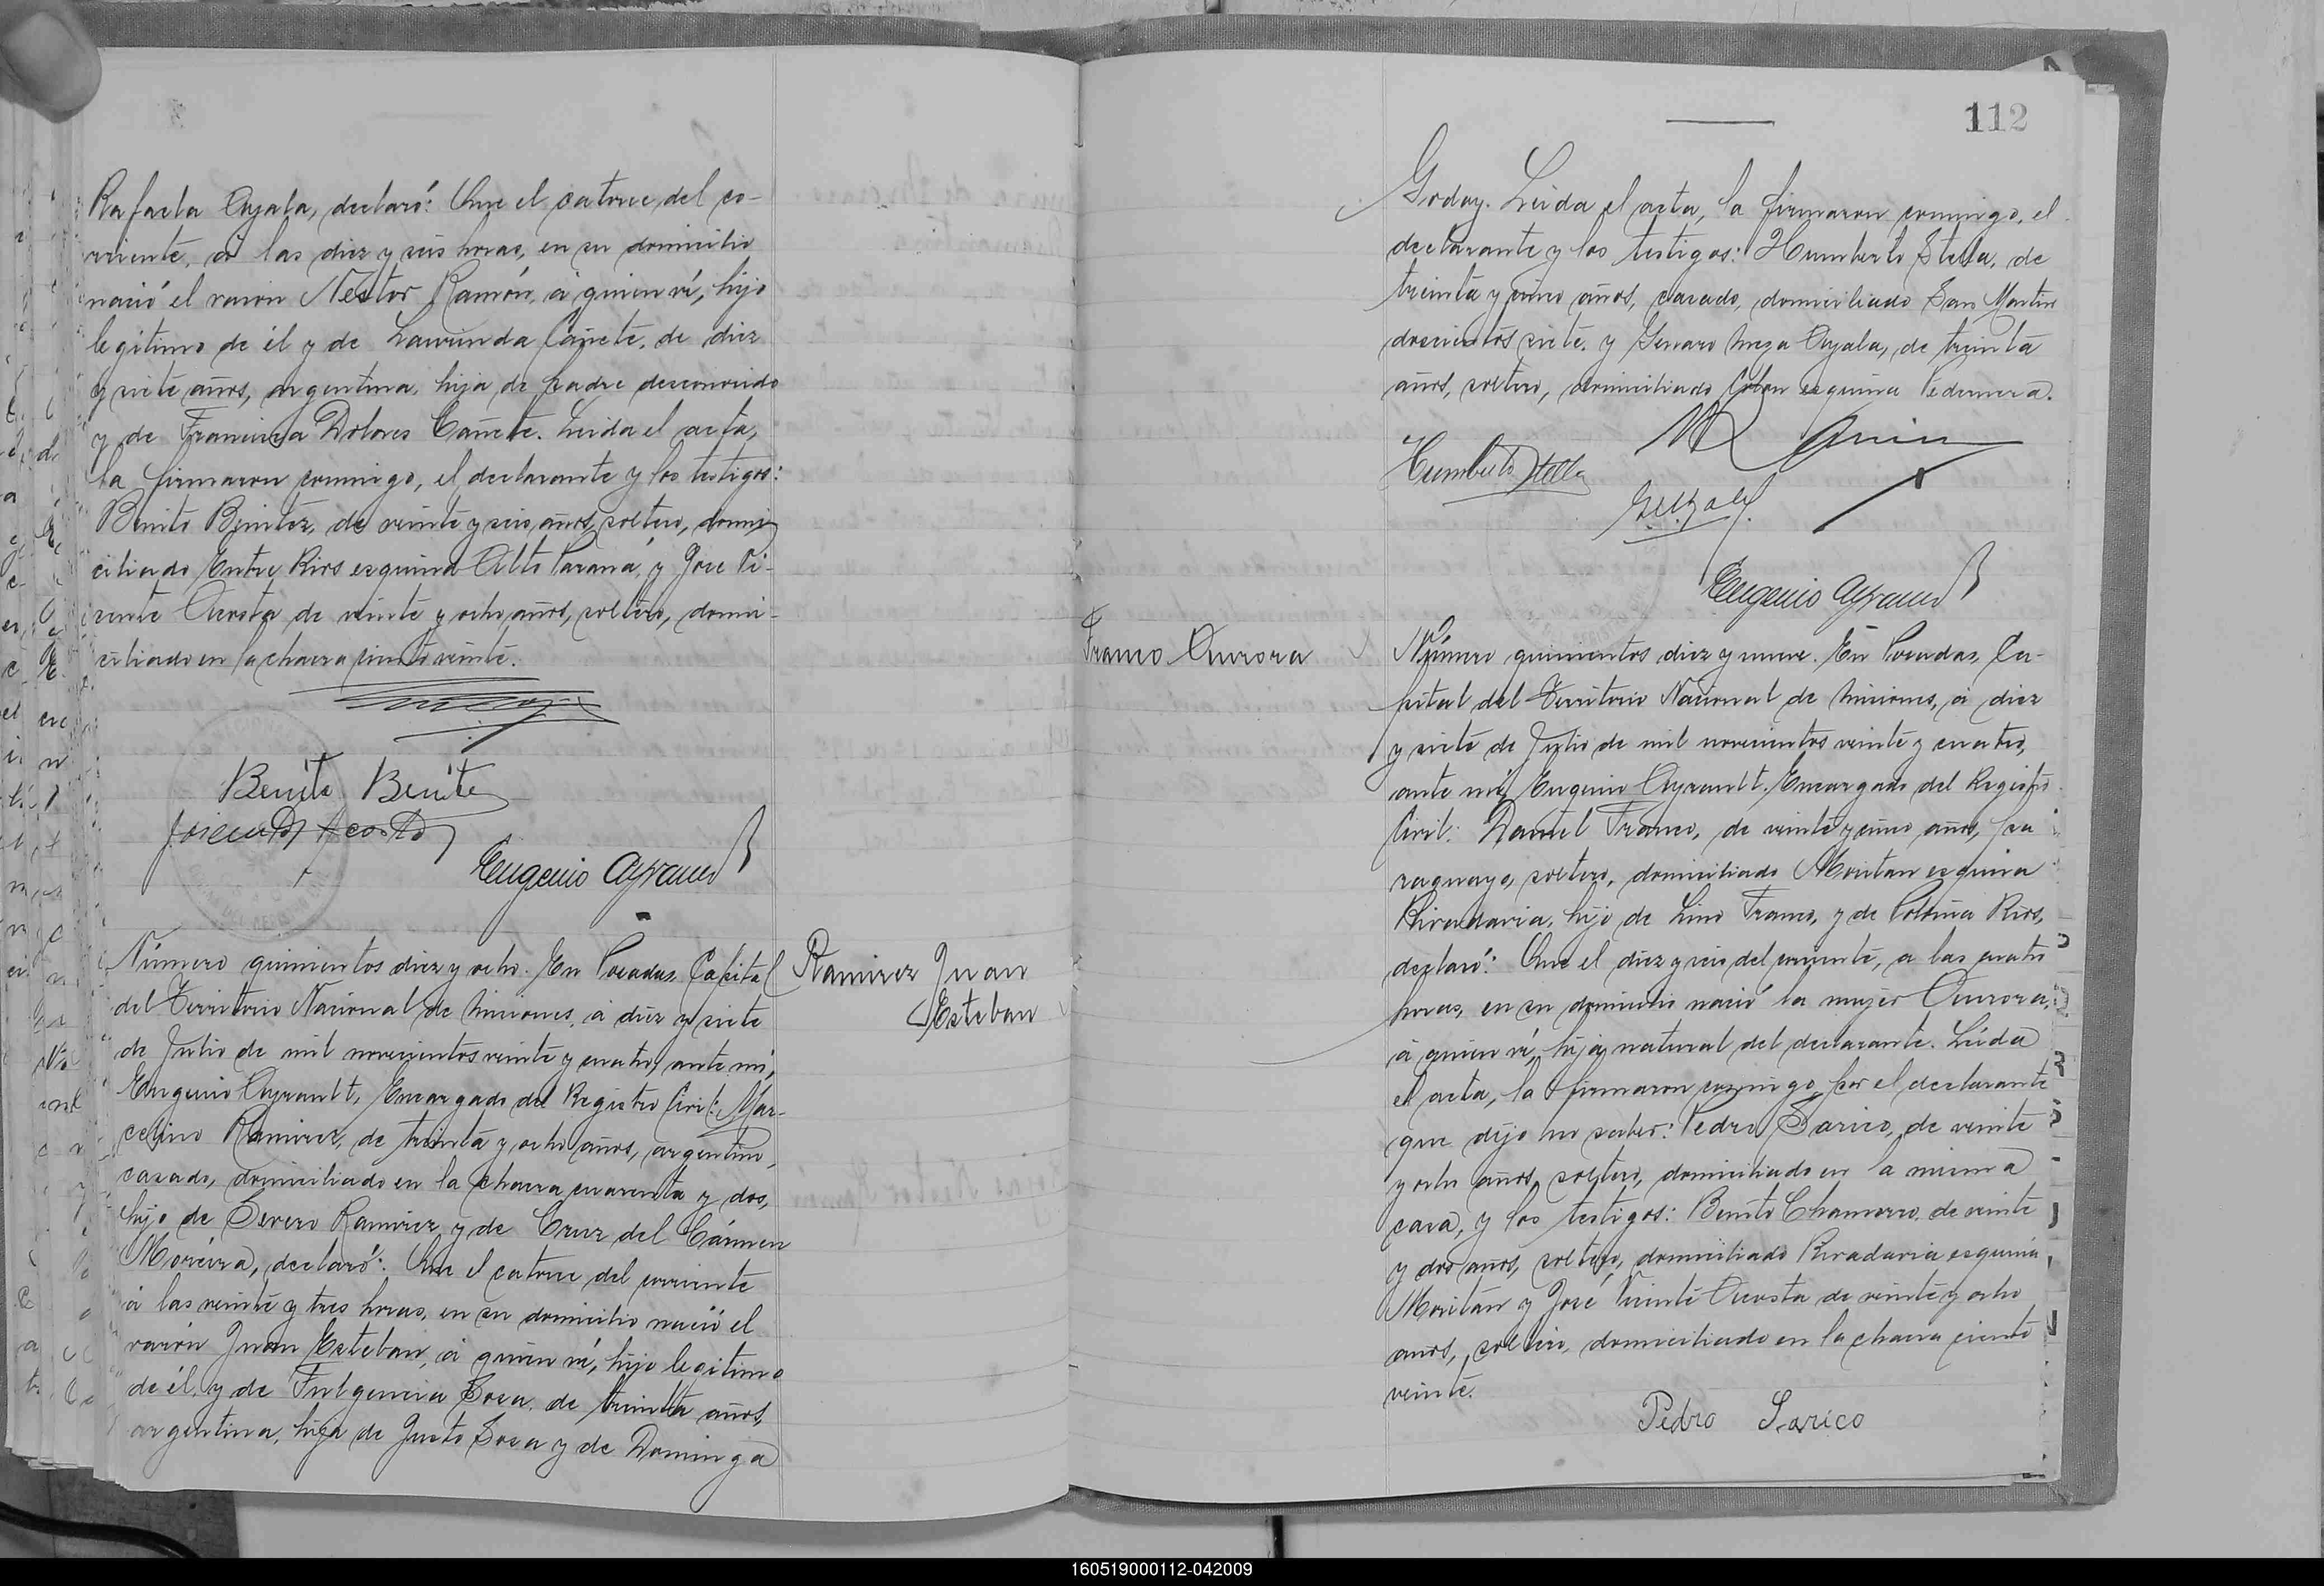 Rafaela Ayala, declaró: Que el catorce del co-
rriente, á las diez y seis horas, en su domicilio
nació el varón Nestor Ramón, á quien ví, hijo
legitimo de él y de Laurinda Cañete, de diez
y siete años, argentina, hija de padre desconocido
y de Francisca Dolores Cañete. Leida el acta,
la firmaron conmigo, el declarante y los testigos:
Benito Benitez, de veinte y seis años, soltero, domi-
ciliado Entre Rios esquina Alto Paraná, y José Vi-
cente Acosta de veinte y ocho años, soltero, domi-
ciliado en la chacra ciento veinte.
Benito Benitez
Acosta
Eugenio Ayrault
Número quinientos diez y ocho. En Posadas, Capital
del Territorio Nacional de Misiones, á diez y siete
de Julio de mil novecientos veinte y cuatro, ante mí,
Eugenio Ayrault, Encargado del Registro Civil: Mar-
celino Ramirez, de treinta y ocho años, argentino,
casado, domiciliado en la chacra cuarenta y dos,
hijo de Severo Ramirez y de Cruz del Cármen
Moreira, declaró: Que el catorce del corriente
á las veinte y tres horas, en su domicilio nació el
varón Juan Esteban, á quien ví, hijo legitimo
de él, y de Fulgencia Sosa, de treinta años,
argentina, hija de Justo Sosa y de Dominga
Ramirez Juan
Esteban
112
Godoy. Leida el acta, la firmaron conmigo, el
declarante y los testigos: Humberto Stella, de
treinta y cinco años, casado, domiciliado San Martin
doscientos siete, y Genaro Meza Ayala, de treinta
años, soltero, domiciliado Colon esquina Pedernera.
Humberto Stella
Eugenio Ayrault
Franco Aurora
Número quinientos diez y nueve. En Posadas, Ca-
pital del Territorio Nacional de Misiones, á diez
y siete de Julio de mil novecientos veinte y cuatro,
ante mí, Eugenio Ayrault, Encargado del Registro
Civil: Daniel Franco, de veinte y cinco años, pa
raguayo, soltero, domiciliado Moritan esquina
Rivadavia, hijo de Lino Franco, y de Rios,
declaró: Que el diez y seis del corriente, a las cuatro
horas, en su domicilio nació la mujer Aurora,
á quien ví, hija natural del declarante. Leida
el acta, la firmaron conmigo, por el declarante
que dijo no saber: Pedro Sarico, de veinte
y ocho años, soltero, domiciliado en la misma
casa, y los testigos: Benito Chamorro, de veinte
y dos años, soltero, domiciliado Rivadavia esquina
Moritan y José Vicente Acosta de veinte y ocho
años, soltero, domiciliado en la chacra ciento
veinte.
Pedro Sarico
160519000112-042009